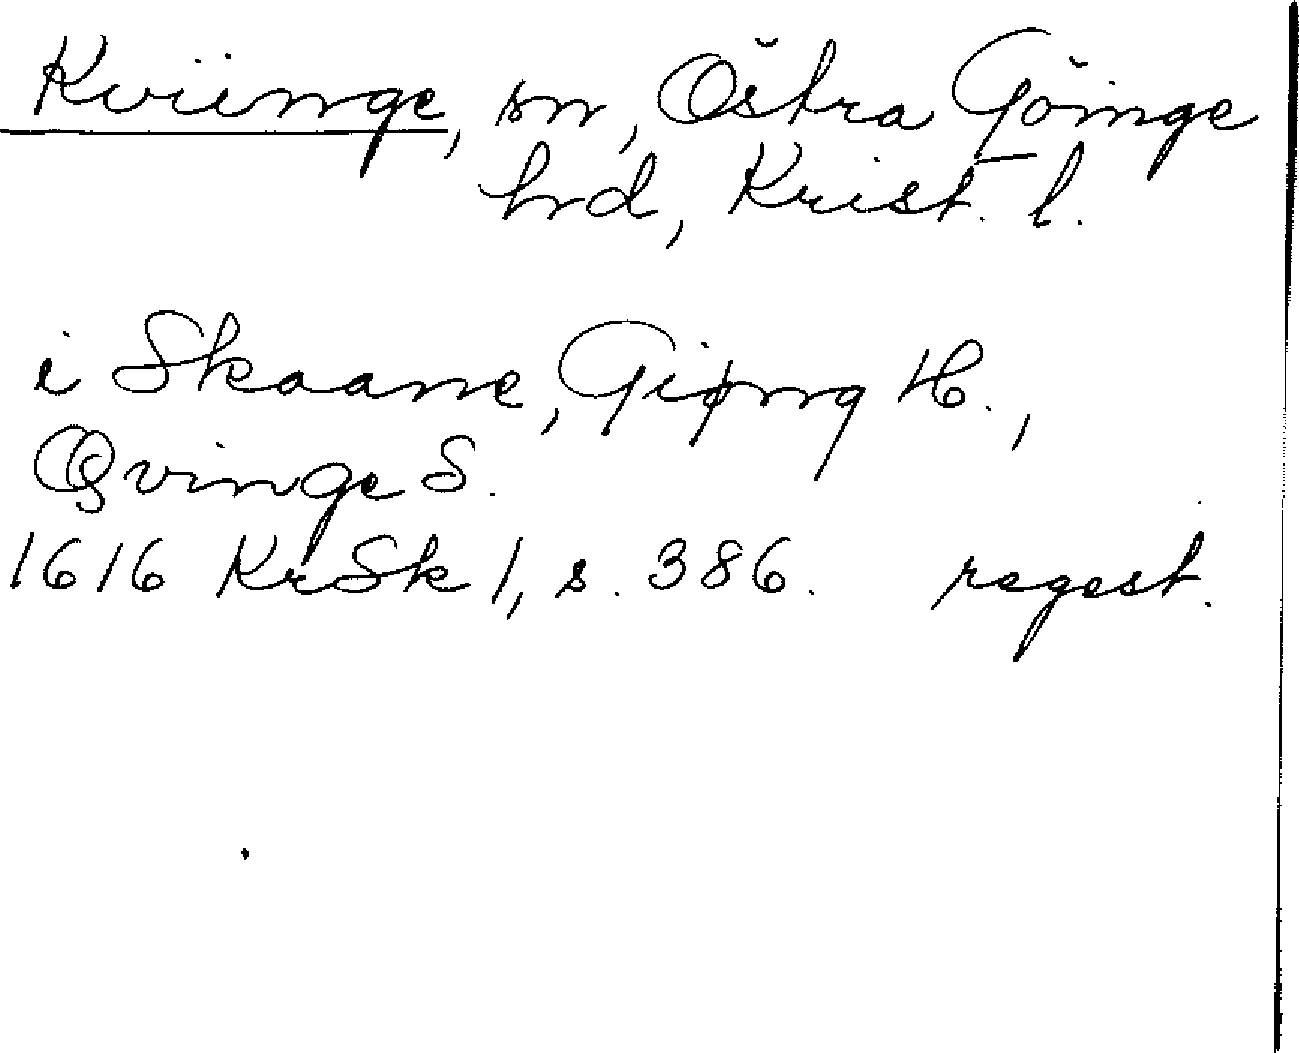 Kviinge, sn, Östra Göinge
hrd, Krist. l.
i Skaane, Giøng H.,
Qvinge S.
1616 KrSk 1, s. 386. regest.